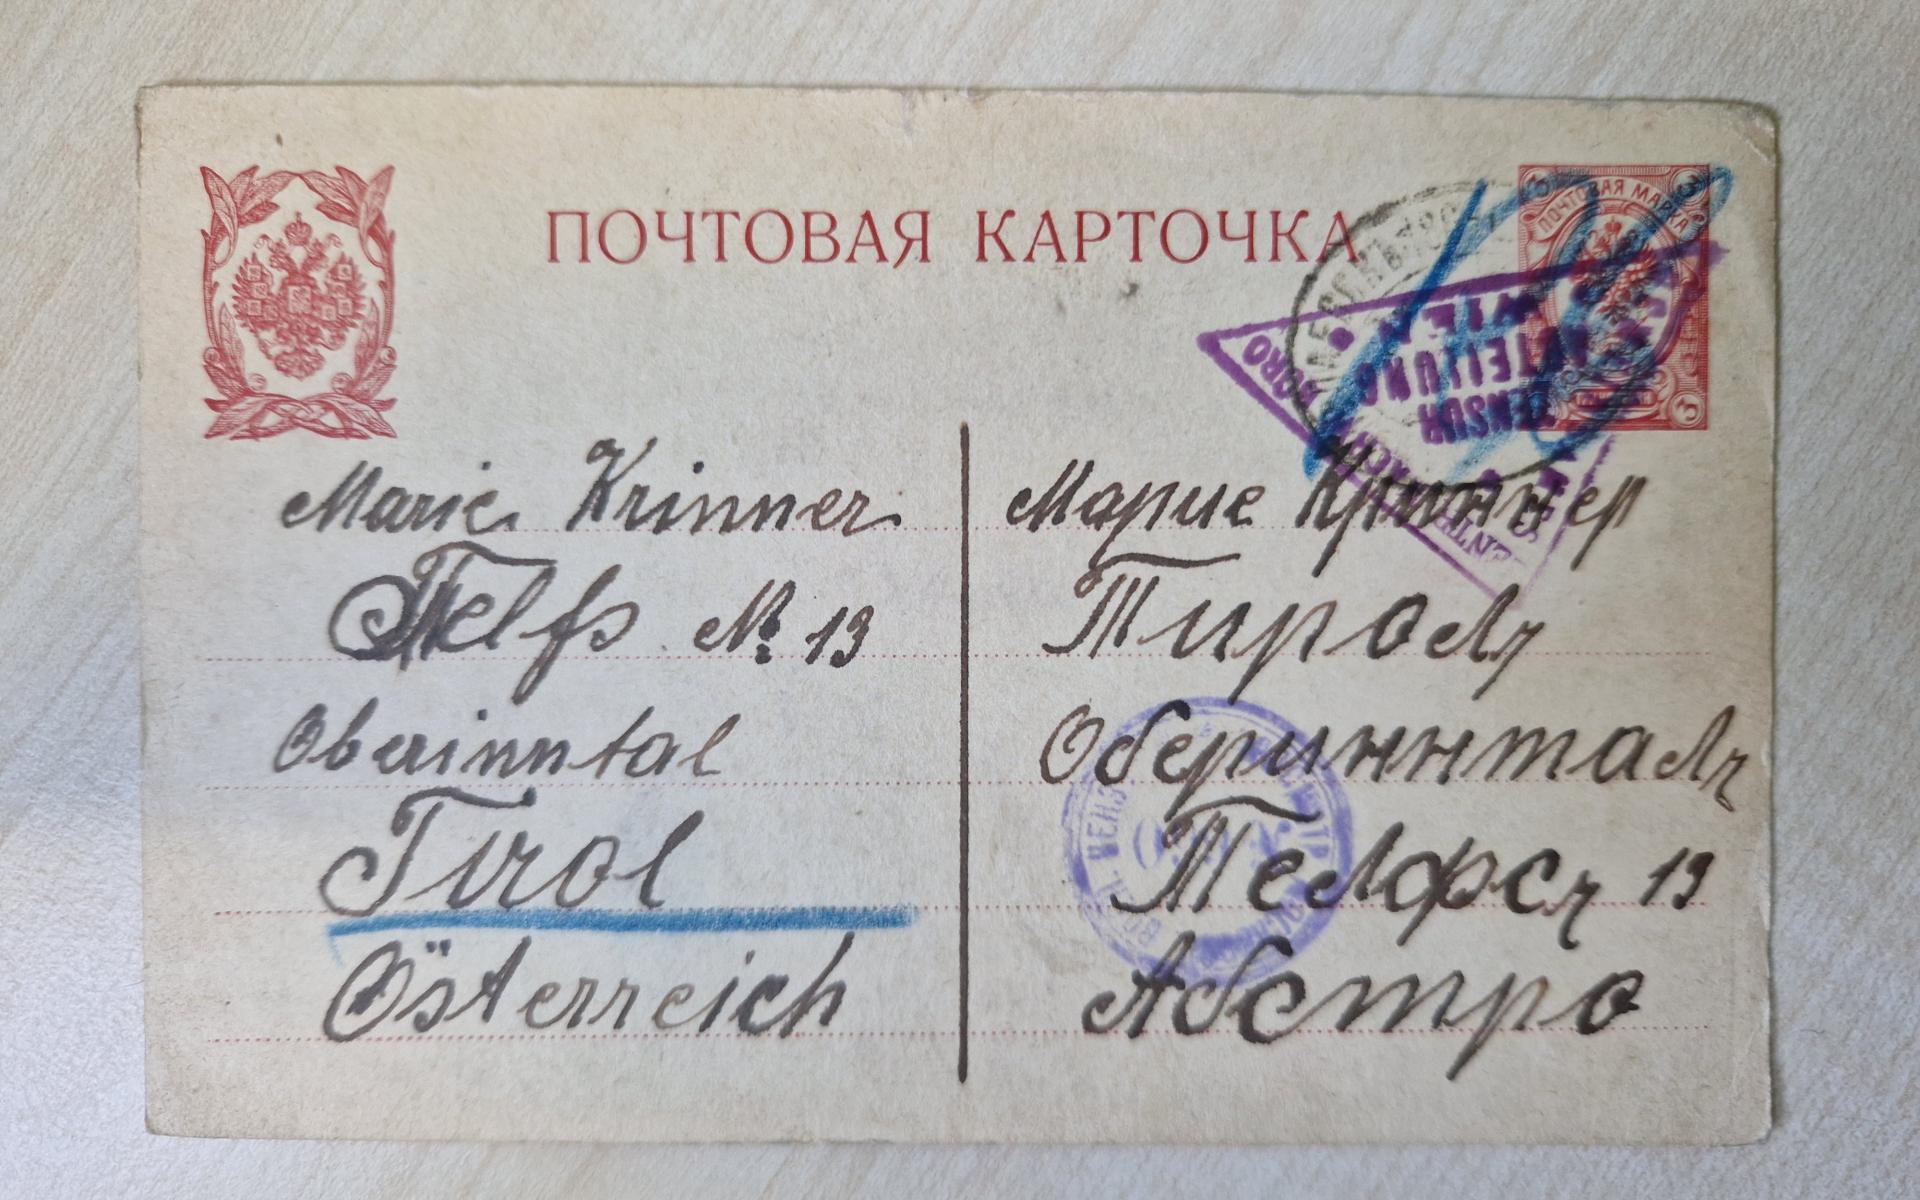 ПОЧТОВАЯ КАРТОЧКА
ПОЧТОВАЯ МАРКА
3
ZENSUR
ABTEILUNG
WIEN
Marie Krinner
Telfs № 13
Oberinntal
Tirol
Österreich
Марие Криннер
Тироль
Обериннталь
Телфсъ 13
Абстро